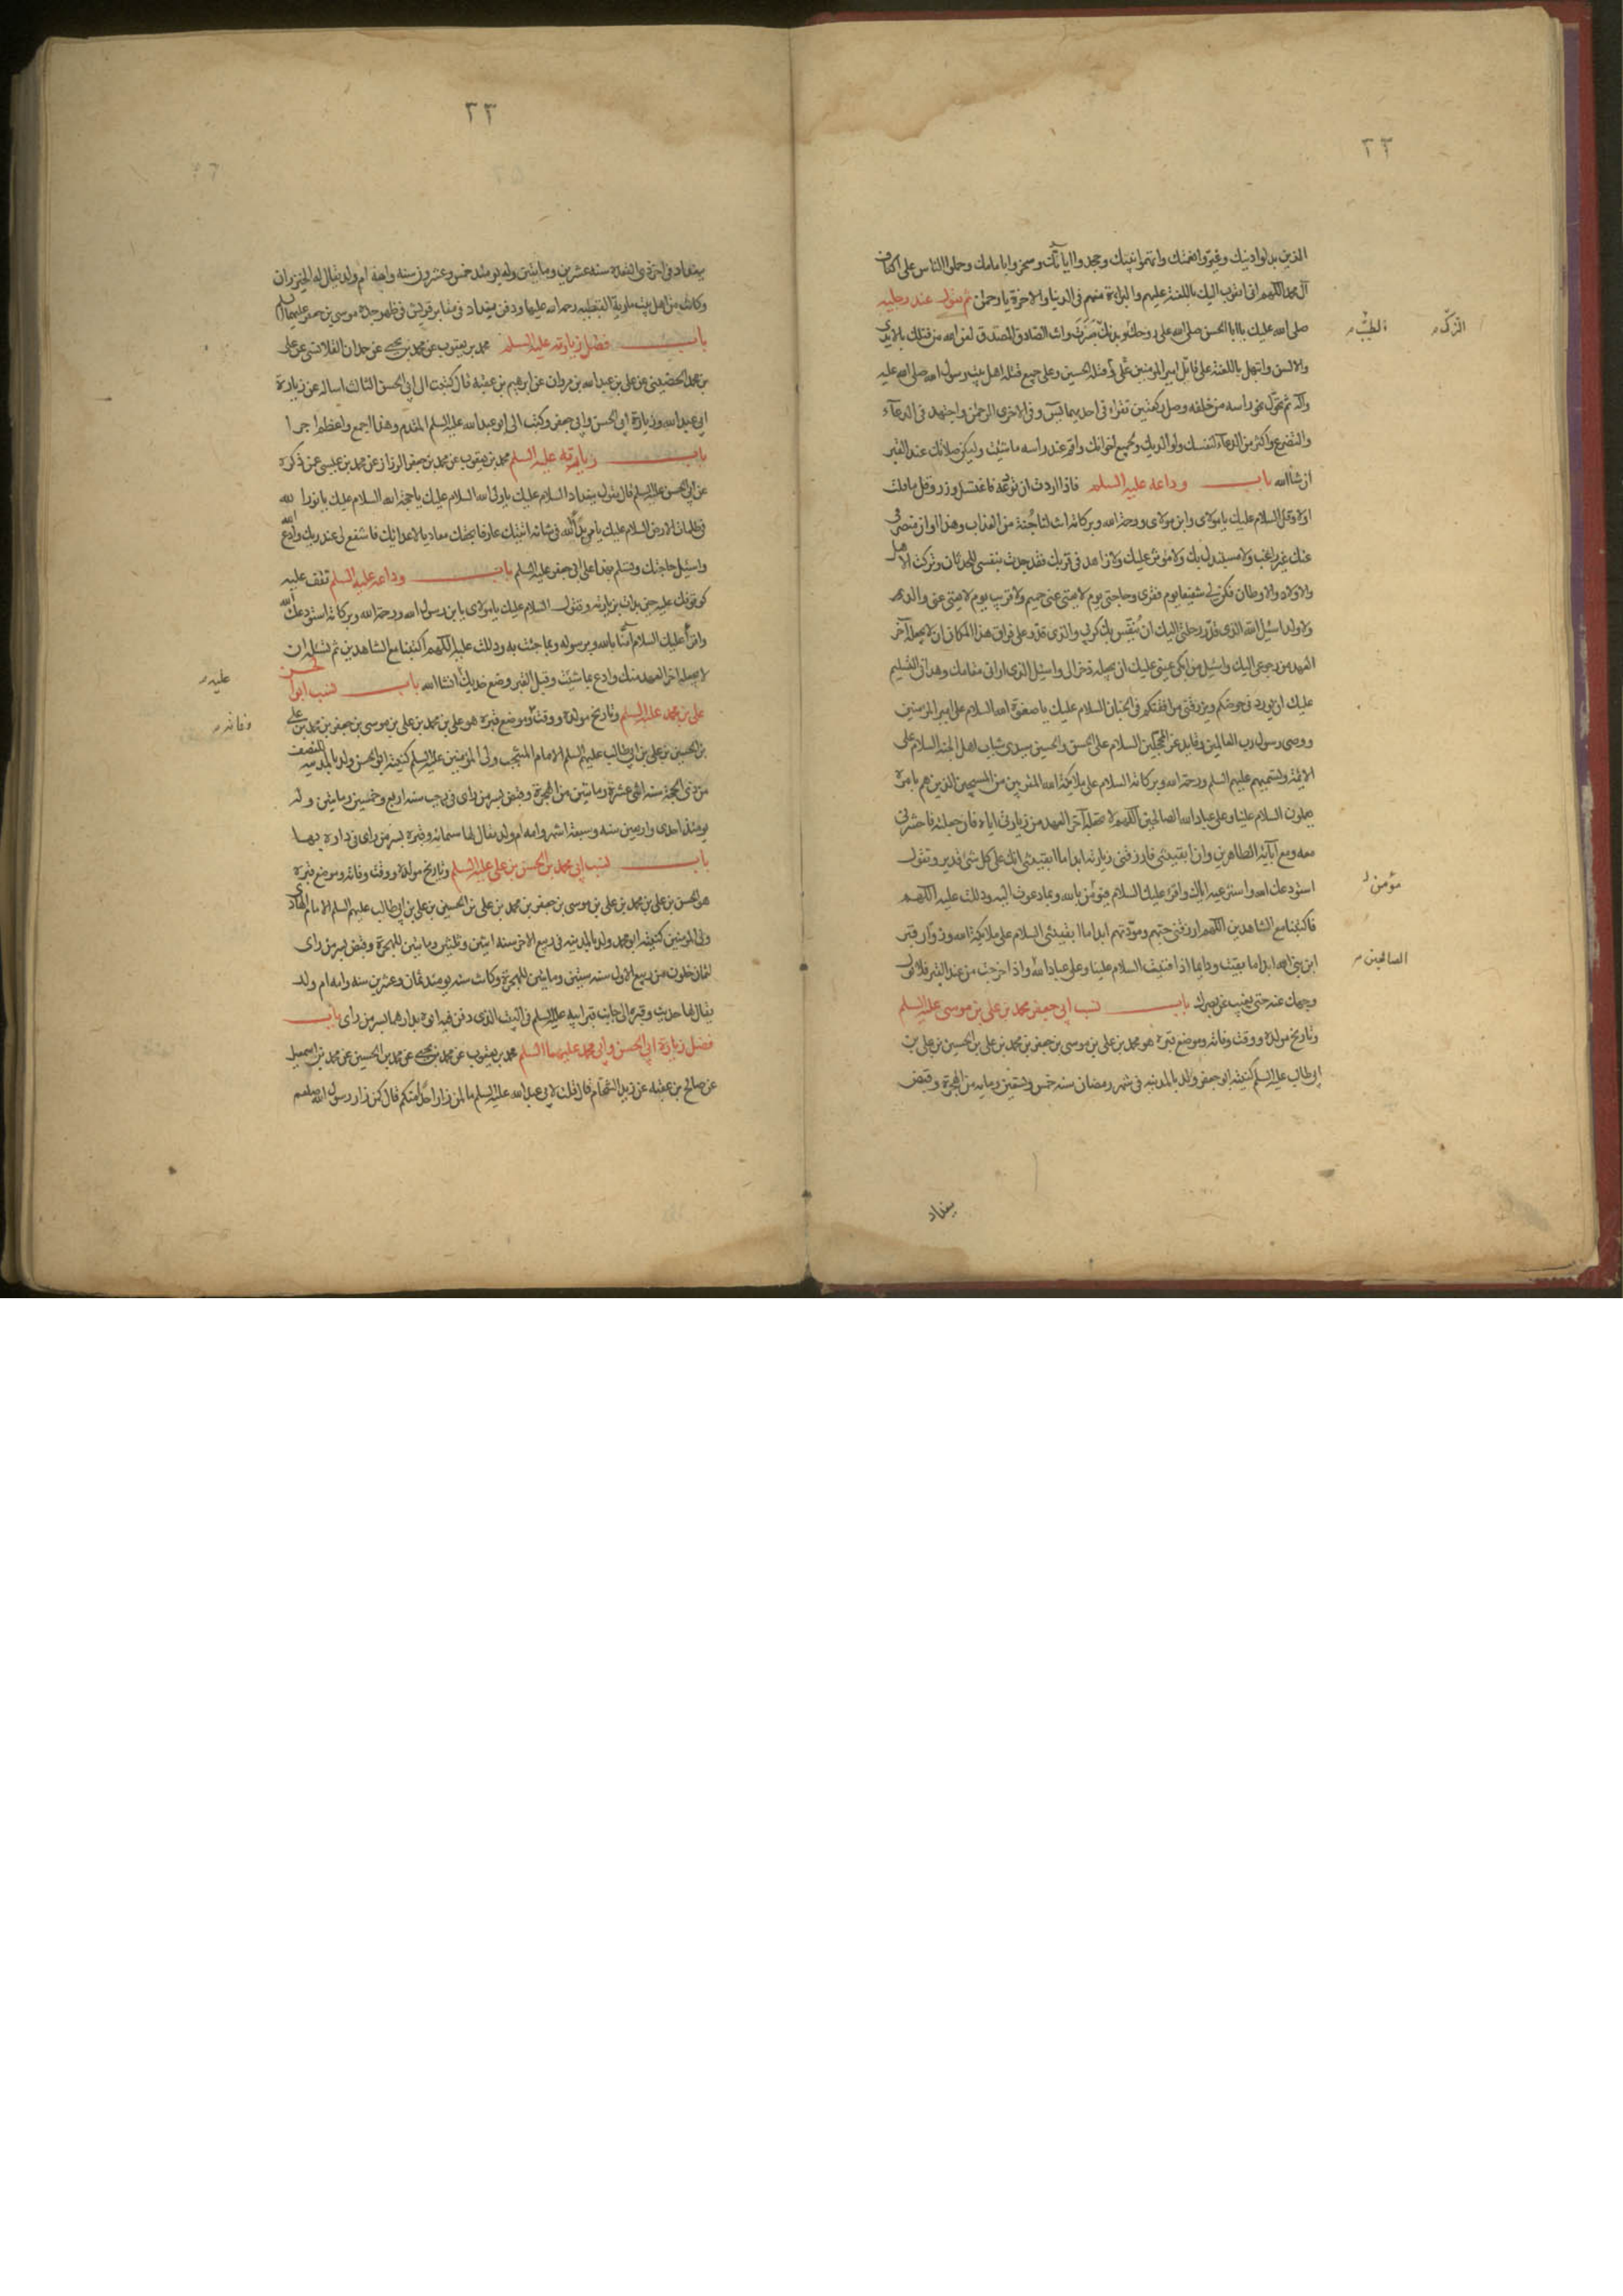 ٢٣
الذين بدلوا دينك وغيروا نعمتك واتهموا نبيك وجحدوا اياتك وسخروا بامامك وحملوا الناس على اكتاف
آل محمد اللهم انى اتقرب اليك باللعنة عليهم والبراءة منهم فى الدنيا والاخرة يا رحمن ثم تحول عند رجليه
صلى الله عليك يا ابا الحسن صلى الله على روحك وبدنك صبرت وانت الصادق المصدق لعن الله من قتلك بالايدى
الطيب
الزكى
والالسن وابتهل باللعنة على قاتل امير المومنين على وقتلة الحسين وعلى جميع قتلة اهل بيت رسول الله صلى الله عليه
وآله ثم تحول نحو راسه من خلفه وصل ركعتين تقراء فى احديهما يس وفى الاخرى الرحمن واجتهد فى الدعآء
والتضرع واكثر من الدعاء لنفسك ولوالديك ولجميع اخوانك واقم عند راسه ما شئت وليكن صلاتك عند القبر
ان شاالله باب وداعه عليه السلم فاذا اردت ان تودعه فاغتسل وزر وقل مامك
اولا وقل السلام عليك يا مولاى وابن مولاى ورحمة الله وبركاته انت لنا جُنة من العذاب وهذا اوان منصرفى
عنك غير راغب ولا مستبدل بك ولا موثر عليك ولا زاهد فى قربك فقد جدت بنفسى للحدثان وتركت الاهل
والاولاد والاوطان فكن لى شفيعا يوم فقرى وحاجتى يوم لا يغنى عنى حميم ولا قريب يوم لا يغنى عنى والدى
ولا ولد اسئل الله الذى قدر رحلتى اليك ان يُنفّس بك كربى والذى قدر على فراق هذا المكان ان لا يجعله آخر
العهد من رجوعى اليك واسئل من ابكى عينى عليك ان يجعله ذخرا لى واسئل الذى ارانى مقامك وهدانى للتسليم
عليك ان يوردنى حوضكم ويرزقنى مرافقتكم فى الجنان السلام عليك يا صفوة الله السلام على امير المومنين
ووصى رسول رب العالمين وقايد غر المحجلين السلام على الحسن والحسين سيدى شباب اهل الجنة السلام على
الائمة وتسميهم عليهم السلم ورحمة الله وبركاته السلام على ملايكة الله المقربين من المسبحين الذين هم بامره
يعملون السلام علينا وعلى عباد الله الصالحين اللهم لا تجعله آخر العهد من زيارتى اياه فان جعلته فاحشرنى
معه ومع آبآيه الطاهرين وان ابقيتنى فارزقنى زيارته ابدا ما ابقيتنى انك على كل شى قدير وتقول
استودعك الله واسترعيه اياك واقرء عليك السلام مؤمن بالله وبما دعوت اليه ودللت عليه اللهم
مؤمن
فاكتبنا مع الشاهدين اللهم ارزقنى حبهم ومودتهم ابدا ما ابقيتنى السلام على ملايكة الله وزوار قبر
ابن نبى الله ابدا ما بقيت ودايما اذا فنيت السلام علينا وعلى عباد الله واذا خرجت من عند القبر فلا تول
الصالحين
وجهك عنه حتى يغيب عن بصرك باب نسب ابى جعفر محمد بن على بن موسى عليه السلم
وتاريخ مولده ووقت وفاته وموضع قبره هو محمد بن على بن موسى بن جعفر بن محمد بن على بن الحسين بن على بن
ابى طالب عليه السلم كنيته ابو جعفر ولد بالمدينه فى شهر رمضان سنه خمس وتسعين ومايه من الهجرة وقبض
بغداد
٢٣
ببغداد فى اخر ذى القعده سنه عشرين ومايتين وله يومئذ خمس وعشرون سنه وامه ام ولد يقال لها الخيزران
وكانت من اهل بيت مارية القبطيه رحمة الله عليها ودفن ببغداد فى مقابر قريش فى ظهر جده موسى بن جعفر عليهما السلم
باب فضل زيارته عليه السلم محمد بن يعقوب عن محمد بن يحيى عن حمدان القلانسى عن على
بن محمد الحضينى عن على بن عبد الله بن مروان عن ابرهيم بن عقبه قال كتبت الى ابى الحسن الثالث اساله عن زيارة
ابى عبد الله وزيارة ابى الحسن وابى جعفر وكتب الى ابو عبد الله عليه السلم المقدم وهذا اجمع واعظم اجرا
باب زيارته عليه السلم محمد بن يعقوب عن محمد بن جعفر الرزاز عن محمد بن عيسى عن ذكره
عن ابى الحسن عليه السلم قال تقول ببغداد السلام عليك يا ولى الله السلام عليك يا حجة الله السلام عليك يا نور الله
فى ظلمات الارض السلام عليك يا من بدا لله فى شانه اتيتك عارفا بحقك معاديا لاعدائك فاشفع لى عند ربك وادع الله
واسئل حاجتك وتسلم بهذا على ابى جعفر عليه السلم باب وداعه عليه السلم تقف عليه
كوقوفك عليه حين بدات بزيارته وتقول السلام عليك يا مولاى يا بن رسول الله ورحمة الله وبركاته استودعك الله
واقرأ عليك السلام آمنا بالله وبرسوله وبما جئت به ودللت عليه اللهم اكتبنا مع الشاهدين ثم تسئله ان
لا يجعله اخر العهد منك وادع بما شئت وقبل القبر وضع خديك انشا الله باب نسب ابى الحسن
عليه
على بن محمد عليه السلم وتاريخ مولده ووقت وموضع قبره هو على بن محمد بن على بن موسى بن جعفر بن محمد بن على
وفاته
بن الحسين بن على بن ابى طالب عليهم السلم الامام المنتجب ولى المومنين عليه السلم كنيته ابو الحسن ولد بالمدينه للنصف
من ذى الحجة سنه اثنى عشرة ومايتين من الهجرة وقبض بسر من راى فى رجب سنه اربع وخمسين ومايتين وله
يومئذ احدى واربعين سنه وسبعة اشهر وامه ام ولد يقال لها سمانه وقبره بسر من راى فى داره بها
باب نسب ابى محمد بن الحسن بن على عليه السلم وتاريخ مولده ووقت وفاته وموضع قبره
هو الحسن بن على بن محمد بن على بن موسى بن جعفر بن محمد بن على بن الحسين بن على بن ابى طالب عليهم السلم الامام الهادى
ولى المومنين كنيته ابو محمد ولد بالمدينه فى ربيع الاخر سنه اثنين وثلثين ومايتين للهجرة وقبض بسر من راى
لثمان خلون من ربيع الاول سنه ستين ومايتين للهجرة وكانت سنه يومئذ ثمان وعشرين سنه وامه ام ولد
يقال لها حديث وقبره الى جانب قبر ابيه عليه السلم فى البيت الذى دفن فيه ابوه بدارهما بسر من راى باب
فضل زيارة ابى الحسن وابى محمد عليهما السلم محمد بن يعقوب عن محمد بن يحيى عن محمد بن الحسين عن محمد بن اسمعيل
عن صالح بن عقبه عن زيد الشحام قال قلت لابى عبد الله عليه السلم ما لمن زار احدا منكم قال كمن زار رسول الله صلعم